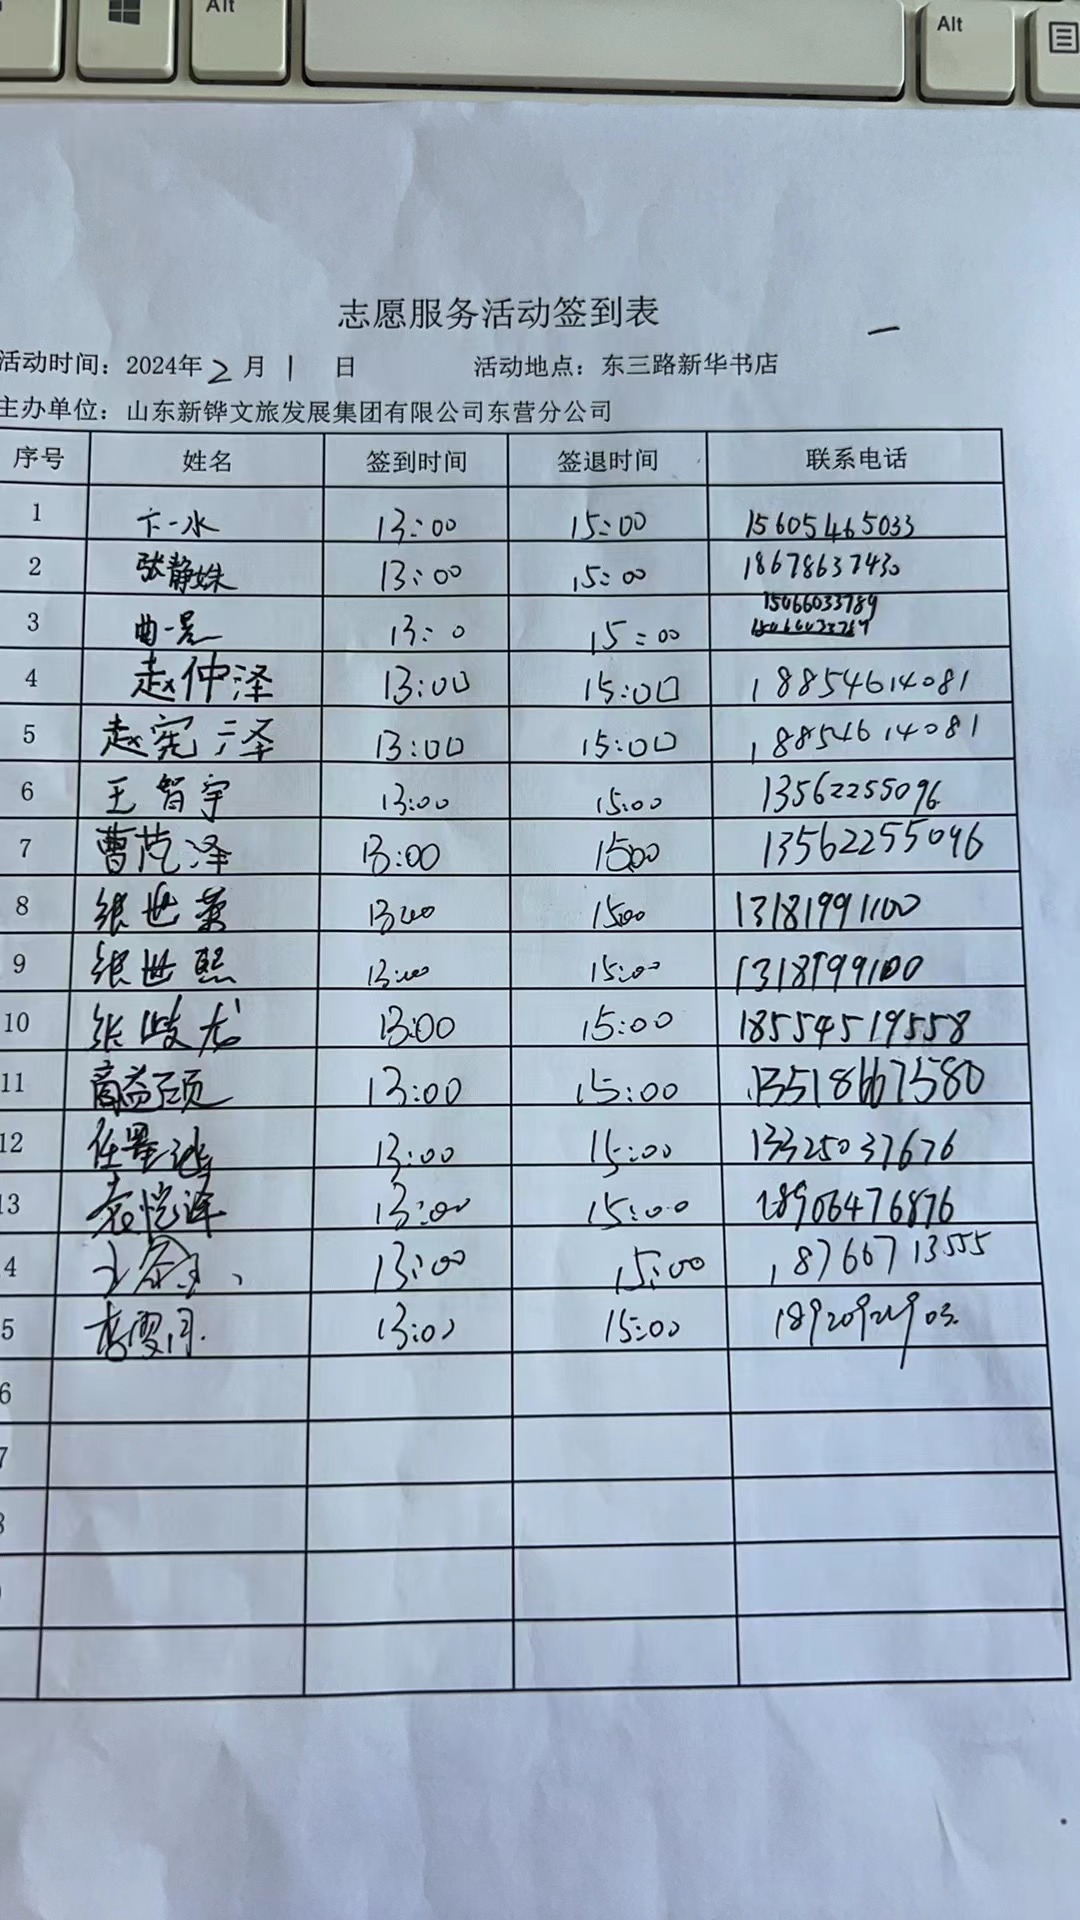 Alt
Alt
志愿服务活动签到表
一
活动时间：2024年2月1日 活动地点：东三路新华书店
主办单位：山东新铧文旅发展集团有限公司东营分公司
序号 姓名 签到时间 签退时间 联系电话
1 卞一水 13:00 15:00 15605465033
2 张静姝 13:00 15:00 18678637430
3 曲一 13:0 15:00 15066033789
4 赵仲泽 13:00 15:00 18854614081
5 赵宪泽 13:00 15:00 18854614081
6 王智宇 13:00 15:00 13562255096
7 曹芃泽 13:00 15:00 13562255096
8 张世荣 13:00 15:00 13181991100
9 张世熙 13:00 15:00
10 张峻龙 13:00 15:00 18554519558
11 商益硕 13:00 15:00 13518667580
12 任墨 13:00 15:00 13325037676
13 袁恺泽 13:00 15:00 18906476876
4 13:00 15:00 18766713555
5 李雯月 13:00 15:00 18920921903
6
7
8